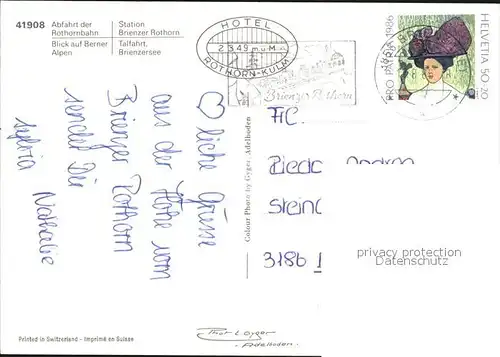 41908
Abfahrt der
Rothornbahn.
Blick auf Berner
Alpen
Station
Brienzer Rothorn
Talfahrt.
Brienzersee
HOTEL
2349 M ü M
ROTHORN-KULM
Brienzer Rothorn
PRO PATRIA 1986
HELVETIA 50+20
♡ liche Grüsse
aus der Höhe vom
Brienzer Rothorn
sendet Dir
Sylvia Nathalie
Colour Photo by Gyger, Adelboden
Frl.
Andrea
3186
privacy protection
Datenschutz
Printed in Switzerland - Imprimé en Suisse
Gyger
Adelboden.